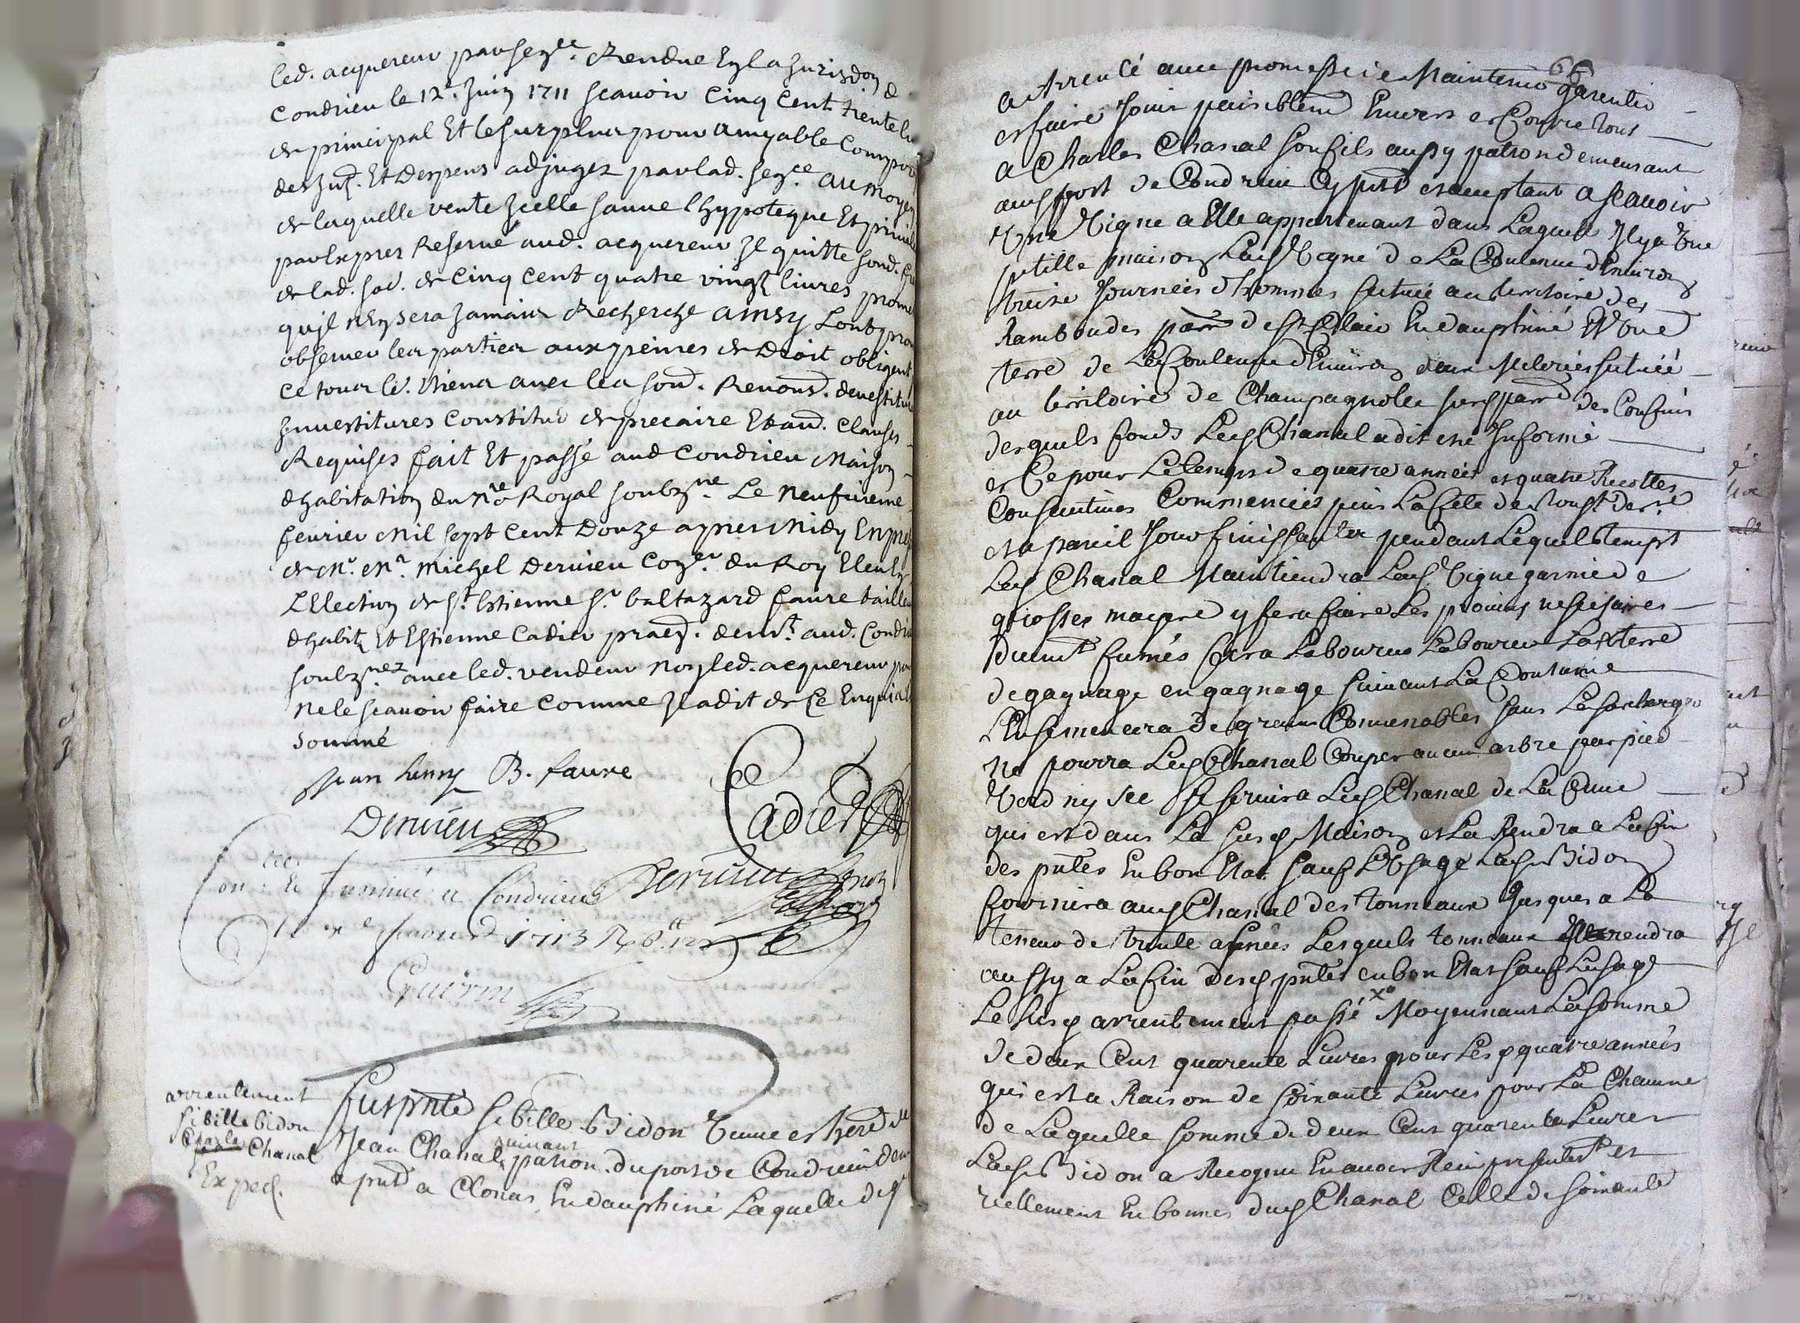 led. acquereur par seg.ce Rendue En la Jurisdon de
Condrieu le 12e. Juin 1711 scavoir Cinq Cent trente
de principal Et le surplus pour amyable Compo
des Jnt. Et Despens adjugez par lad. seg.ce au moyen
de laquelle vente Jcelle sauve l'hypoteque Et privil
par Expres Reservé aud. acquereur Jl quitte sond.
de lad. so.e de Cinq Cent quatre vingt livres prome
qu'jl n'En sera Jamais Recherché ainsy L'ont pro
observer les parties aux peines de Droit obligent
Ce tous le. biens avec les soud. Renond. devestitu
Jnvestitures Constitut de precaire Et aud. Clauses
Requises fait Et passé aud Condrieu Maison
d'habitation du n.re Royal soubz.ne Le neufvieme
fevrier Mil sept Cent Douze apres Midy En pre
de M.e M.e Michel Dervieu Con.er du Roy Eleu En
L'Election de S.t Estienne S.r baltazard faure
d'habit. Et Estienne Cadier prat. demt. aud. Condri
soubz.nez avec led. vendeur non led. acquereur
ne le scavoir faire Comme Jl a dit de Ce Enquis
sommé
Jean B. faure
Dervieu Cadier
Con.lé Et Jnsinué a Condrieu Dervieu
le fevrier 1713
Guerin
arrentement
sibille bidon
Charles Chanal
Exped.
fut pnte sibille Bidon veuve et here de
Jean Chanal vivant patron du port de Condrieu
a pnt a Clonas En dauphiné Laquelle de
66
a Arrencé avec promesse de Maintenir garentir
et faire Jouir paisiblem Envers et Contre tous
a Charles Chanal son fils aussy patron demeurant
aus port de Condrieu Cy pnt et aceptant a scavoir
Une Vigne a Elle appartenant dans Laquelle Il y a Une
petille maison Lad Vigne de La Contenue d'Environ
treise Journées d'hommes situéé au territoire des
parr de St Clair En dauphiné Et Une
terre de La Contenue d'Environ deux situéé
au territoire de Champagnole susd parr des Confins
desquels fonds Led Chanal a dit etre Informé
et Ce pour Le temps de quatre années et quatre Recoltes
Consecutives Commencées puis La fete de Tousst derre
et a pareil Jour finissantes pendant Lequel temps
Led Chanal Maintiendra Lad Vigne garnie de
grosses maijere y fera faire Les provins nessesaires
Duemt fumés sera Labourer Labourer Lad terre
de gagnage en gagnage suivant La Coutume
L'Ensemencera de grains Convenables sans La surcharger
ne pourra Led Chanal Couper aucun arbre par pied
Verd ny sec Se servira Led Chanal de La Cuve
qui est dans La susd Maison et La Rendra a La fin
des pntes En bon Etat sauf L'Usage Lad Bidon
fournira aud Chanal des tonneaux Jusques a La
teneur de trente asnées Lesquels tonneaux Il rendra
aussy a La fin desd pntes en bon Etat sauf L'usage
Le susd arrentement passé Moyennant La somme
de deux Cent quarente Livres pour Lesd quatre années
qui est a Raison de soixante Livres pour La Chacune
de Laquelle somme de deux Cent quarente Livres
Lad Bidon a Recogneu En avoir Receu presentemt et
réellement En bonnes dud Chanal Celle de soixante